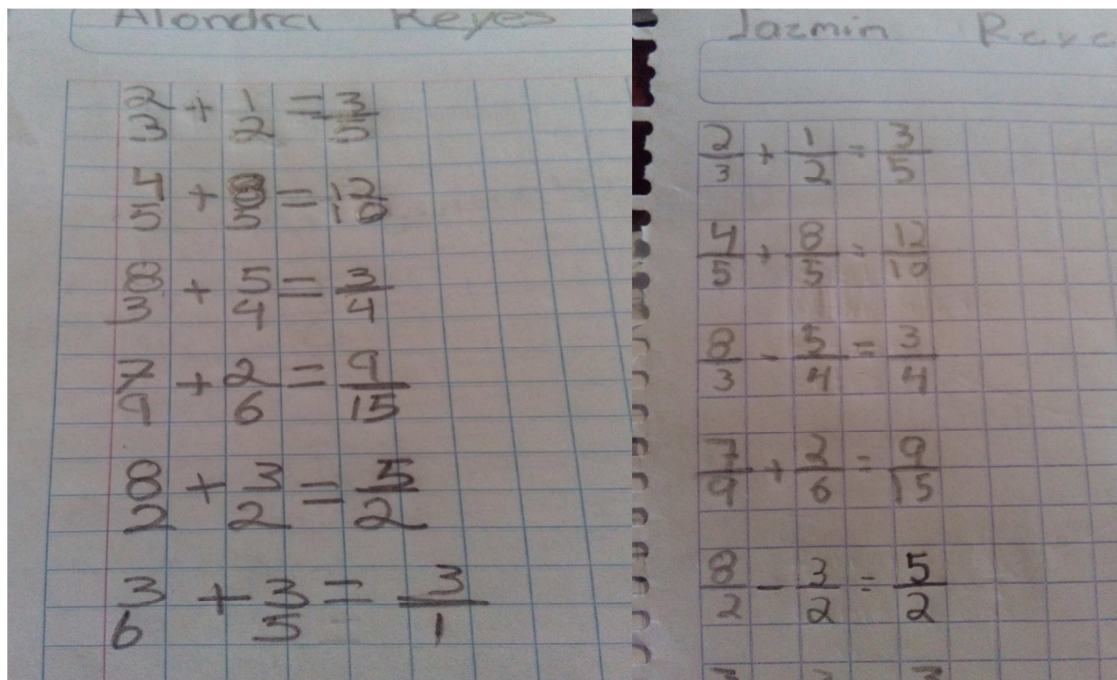 Alondra Reyes
2/3 + 1/2 = 3/5
4/5 + 8/5 = 12/10
8/3 + 5/4 = 3/4
7/9 + 2/6 = 9/15
8/2 + 3/2 = 5/2
3/6 + 3/5 = 3/1
Jazmin
2/3 + 1/2 = 3/5
4/5 + 8/5 = 12/10
8/3 - 5/4 = 3/4
7/9 + 2/6 = 9/15
8/2 - 3/2 = 5/2